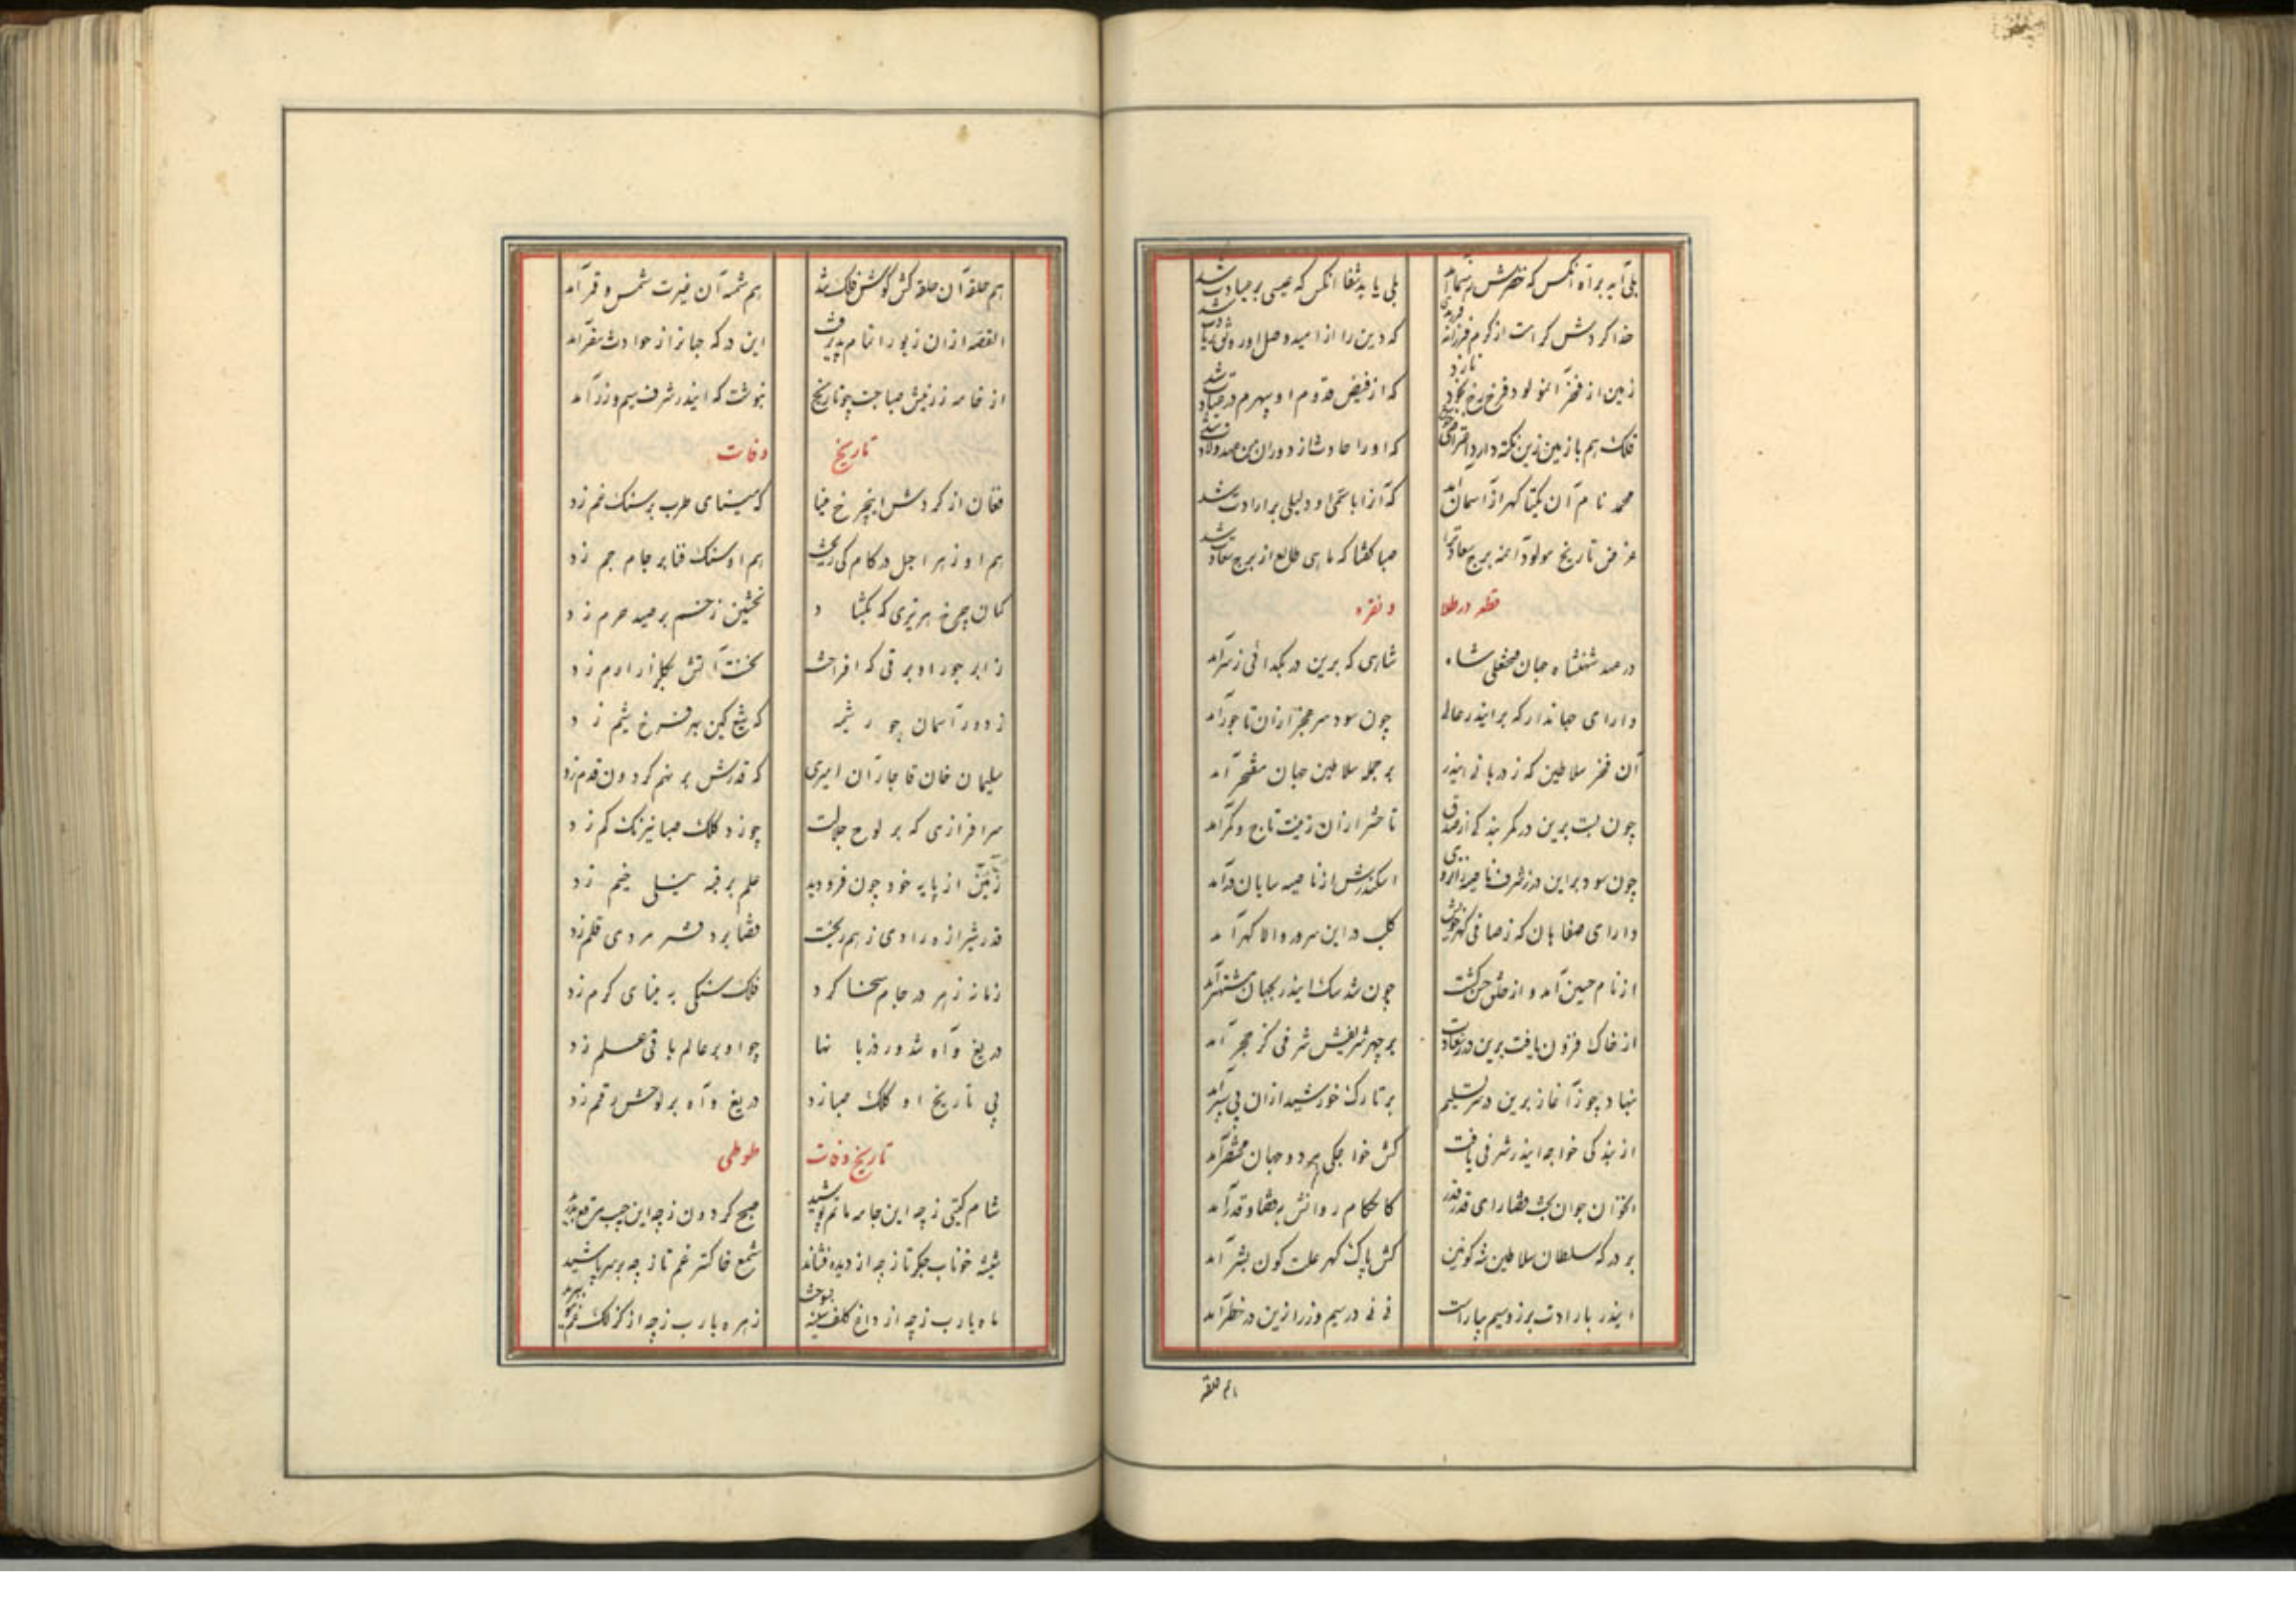 بلی آید براه آنکس که خضرش رهنما آمد بلی یابد شفا آنکس که عیسی بر عیادت شد
خدا کردش کرامت از کرم فرزانه فرزندی که دین را از امید وصل او
زمین از فخر آنمولود فرخ رخ بخود نازد که از فیض قدوم او سپهرم در
فلک هم با زمین زین نکته دارد که او را حادثات از دوران من مهد ولادت شد
محمد نام آن یکتا گهر از آسمان آمد که آنرا با او دلیلی بر ارادت شد
غرض تاریخ مولود آمنه برج سعادت را صبا گفتا که ماهی طالع از برج سعادت شد
قطعه در طلا و نقره
در عهد شهنشاه جهان فتحعلی شاه شاهی که برین در بگدائی ز سر آمد
دارای جهاندار که بر ایندر عالی چون سود سر عجز ازان تاجور آمد
آن فخر سلاطین که ز دربانی ایندر بر جمله سلاطین جهان مفتخر آمد
چون بست برین در کمر بندگی از صدق تا حشر ازان زینت تاج و کمر آمد
چون سود براین در ز شرف ناصیه اسکندرش از ناصیه سایان در آمد
دارای صفاهان که ز صافی گهر خویش کلب در این سرور والا گهر آمد
از نام حسین آمد و از خلق حسن گشت چون شد سگ ایندر بجهان مشتهر آمد
از خاک فزون یافت برین در ز سعادت بر چهر شریفش شرفی کز حجر آمد
بنهاد چو ز آغاز برین در سر تسلیم بر تارک خورشید ازان پی سپر آمد
از بندگی خواجه ایندر شرفی یافت کش خواجگی هر دو جهان مختصر آمد
آن جوان بخت قضا رای قدر قدر کاحکام روانش بقضا و قدر آمد
بر درگه سلطان سلاطین شه کونین کش پاک گهر علت کون بشر آمد
ایندر بارادت بزر و سیم بیاراست نی نی در سیم و زر ازین در خطر آمد
هم حلقه
هم حلقه آن حلقه کش گوش فلک شد هم شمسه آن غیرت شمس و قمر آمد
القصه ازان زیور اتمام پذیرفت این در که جهانرا ز حوادث مفر آمد
از خامه زرینش صبا جست چو تاریخ بنوشت که ایندر شرف سیم و زر آمد
تاریخ وفات
فغان از گردش اینچرخ مینا که مینای طرب بر سنگ غم زد
هم او زهر اجل در کام کی ریخت هم او سنگ فنا بر جام جم زد
کمان چرخ هر تیری که بگشاد نخستین زخم بر صید حرم زد
ز ابر جور او برقی که افراخت نخست آتش بگلزار ارم زد
ز دور آسمان جور پیشه که تیغ کین بهر فرخ شیم زد
سلیمان خان قاجار آن امیری که قدرش بر نهم گردون قدم زد
سرافرازی که بر لوح جلالت چو زد کلک صبا نیرنگ کم زد
زمین از پایه خود چون فرو دید علم بر قبه نیلی خیم زد
قدر شیرازه رادی ز هم ریخت قضا بر دفتر مردی قلم زد
زمانه زهر در جام سخا کرد فلک سنگی به مینای کرم زد
دریغ و آه شد ور نه چو او بر عالم باقی علم زد
پی تاریخ او کلک صبا زد دریغ و آه بر لوحش رقم زد
تاریخ وفات طوطی
شام گیتی ز چه این جامه ماتم پوشید صبح گردون ز چه این جیب مرقع بدرید
شیشه خوناب جگر تا ز چه از دیده فشاند شمع خاکستر غم تا ز چه بر سر پاشید
ماه یا رب ز چه از داغ کلف سینه بسوخت زهره یا رب ز چه از گزلک غم